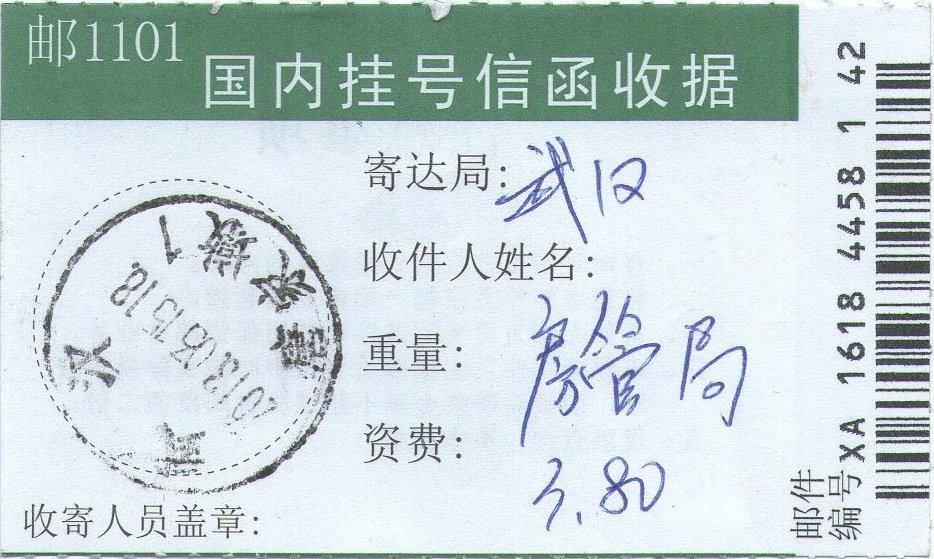 邮1101
国内挂号信函收据
寄达局: 武汉
收件人姓名:
房管局
重量:
资费: 3.80
收寄人员盖章:
2013.05.15.18
邮件
编号
XA 1618 4458 1 42